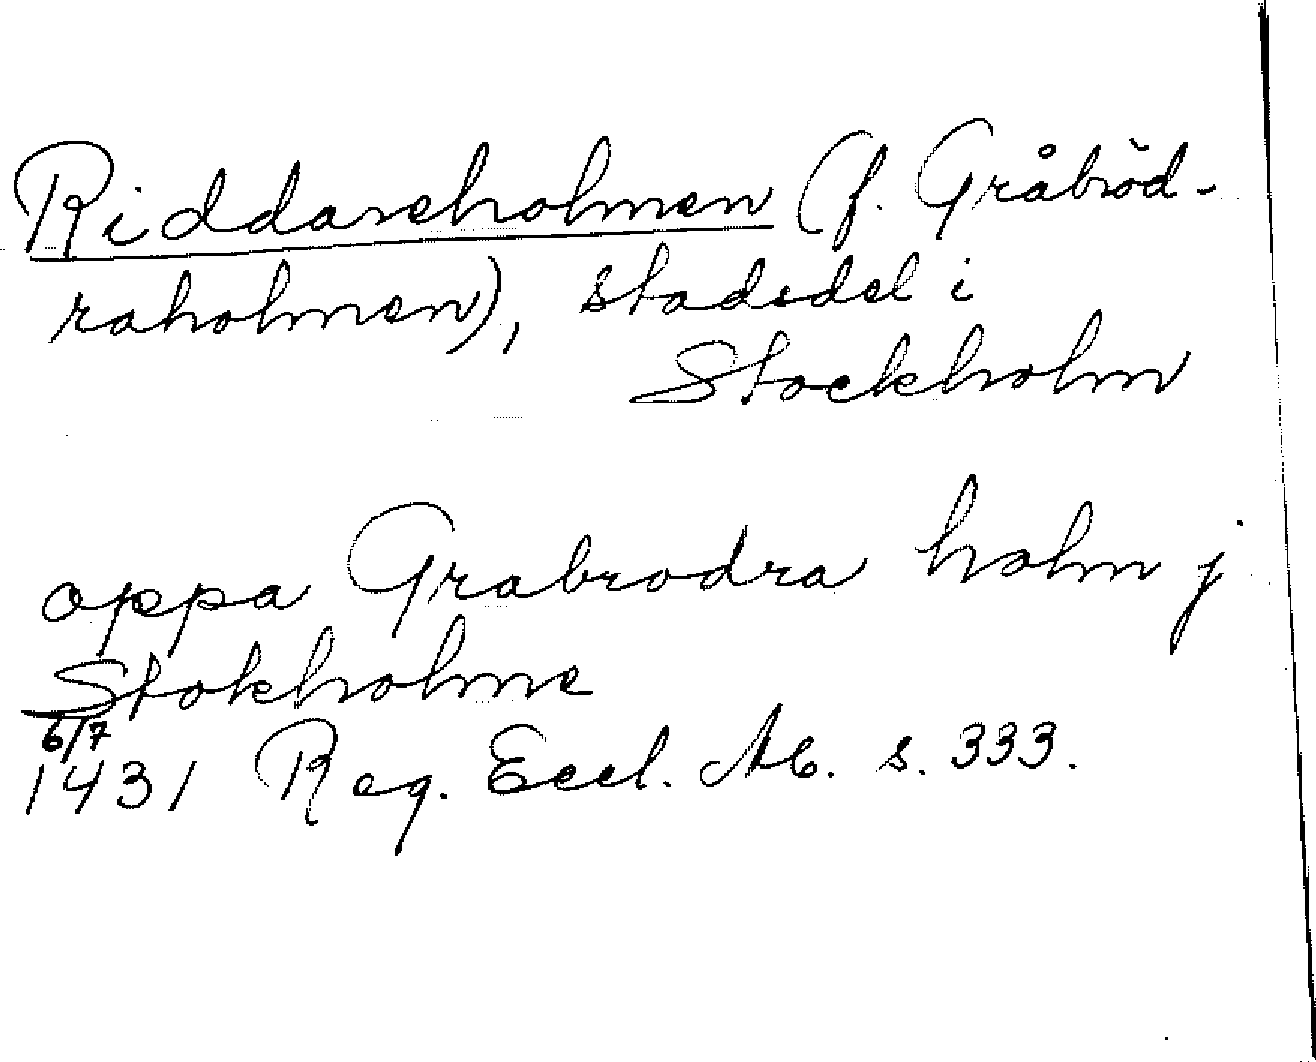 Riddareholmen (f. Gråbröd-
raholmen), stadsdel i
Stockholm
oppa Grabrodra holm j
Stokholme
6/7
1431 Reg. Eccl. Ab. s. 333.